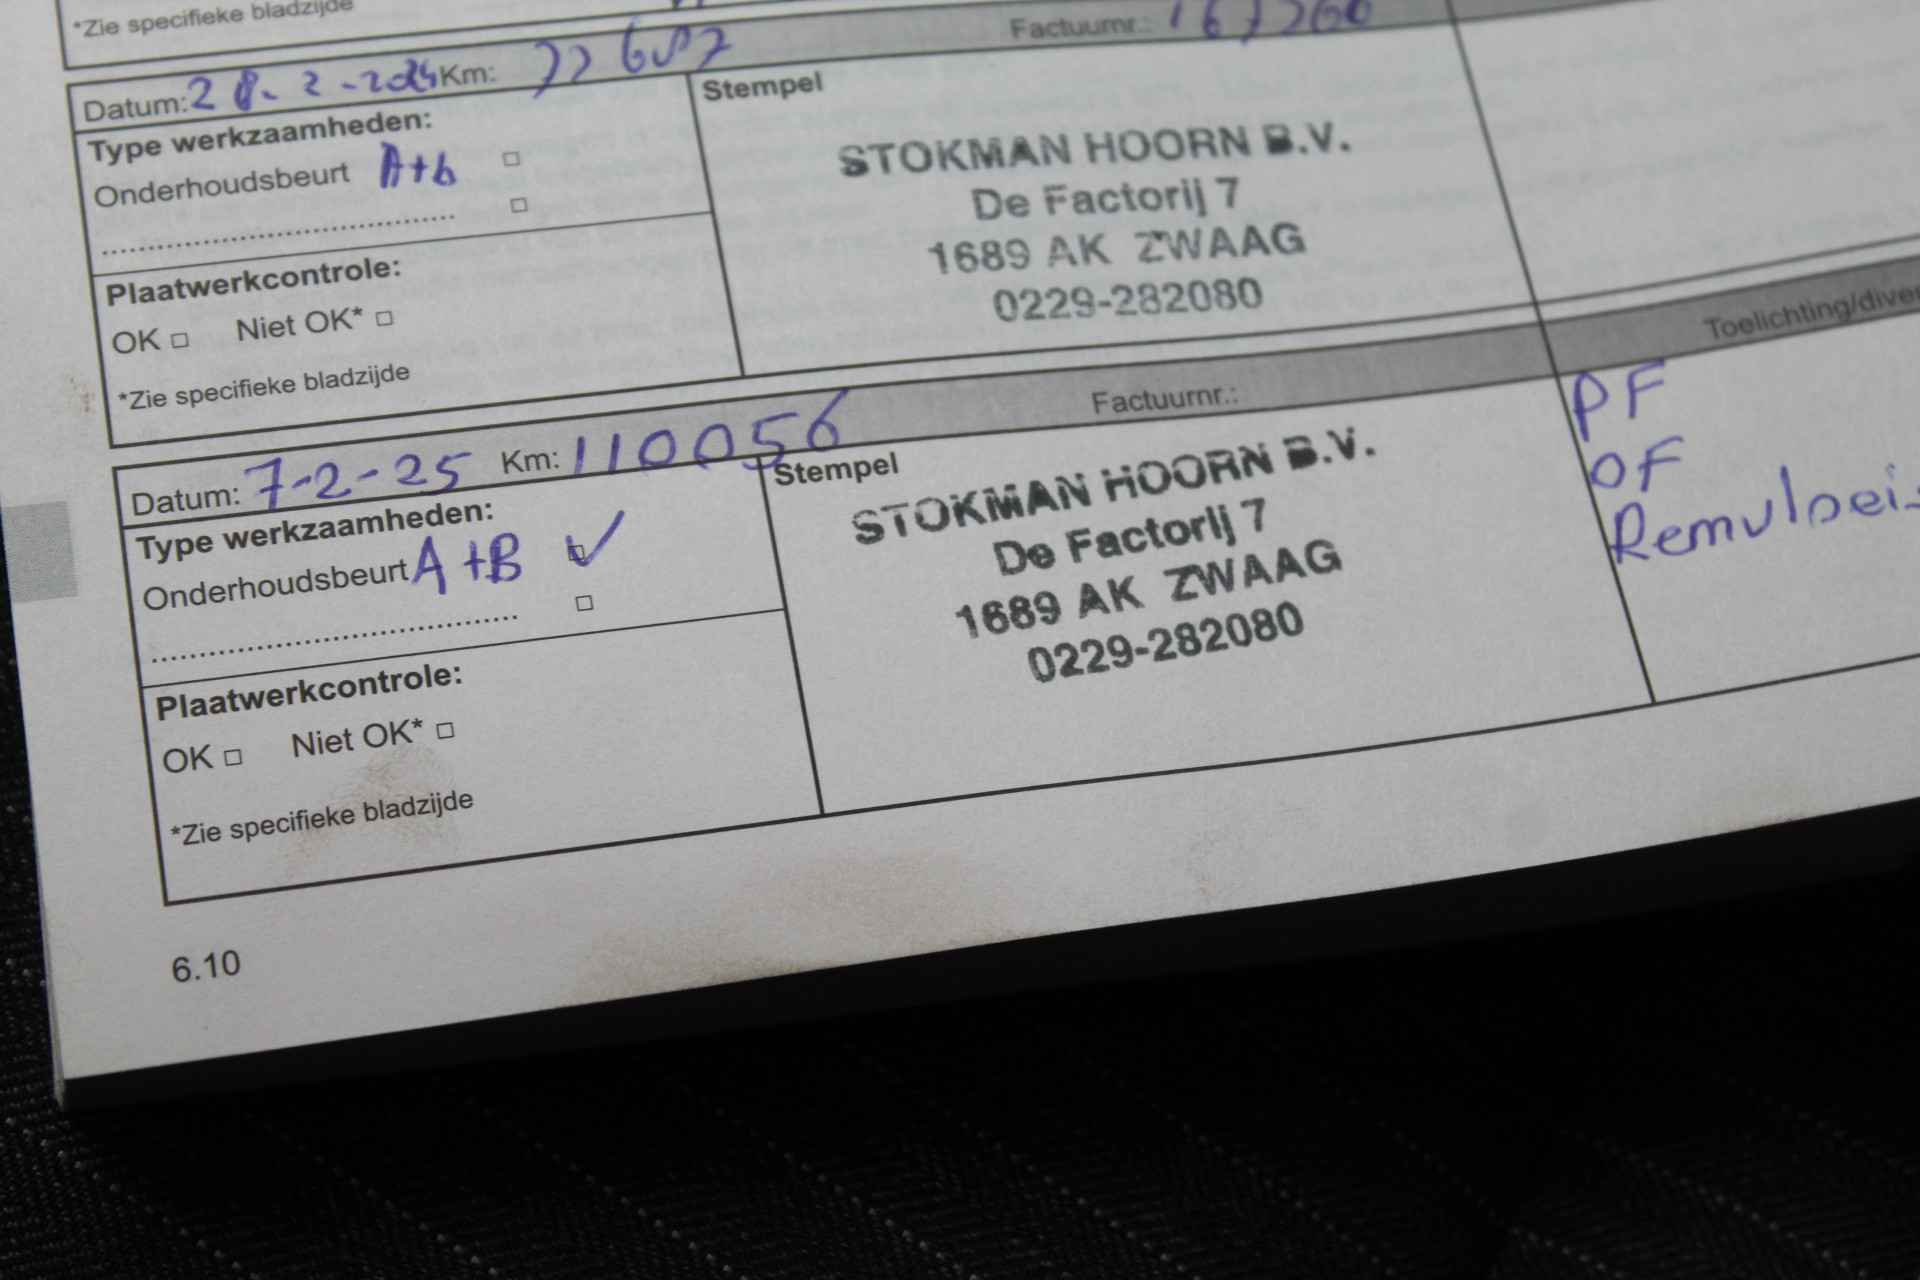 *Zie specifieke bladzijde
Datum: 28-2-2024 Km: 77687 Factuurnr.:
Type werkzaamheden:
Onderhoudsbeurt A+b
Plaatwerkcontrole:
OK Niet OK*
*Zie specifieke bladzijde
Stempel
STOKMAN HOORN B.V.
De Factorij 7
1689 AK ZWAAG
0229-282080
Datum: 7-2-25 Km: 110056 Factuurnr.:
Type werkzaamheden:
Onderhoudsbeurt A+B ✓
Plaatwerkcontrole:
OK Niet OK*
*Zie specifieke bladzijde
Stempel
STOKMAN HOORN B.V.
De Factorij 7
1689 AK ZWAAG
0229-282080
Toelichting/diver
PF
OF
Remvloeis
6.10